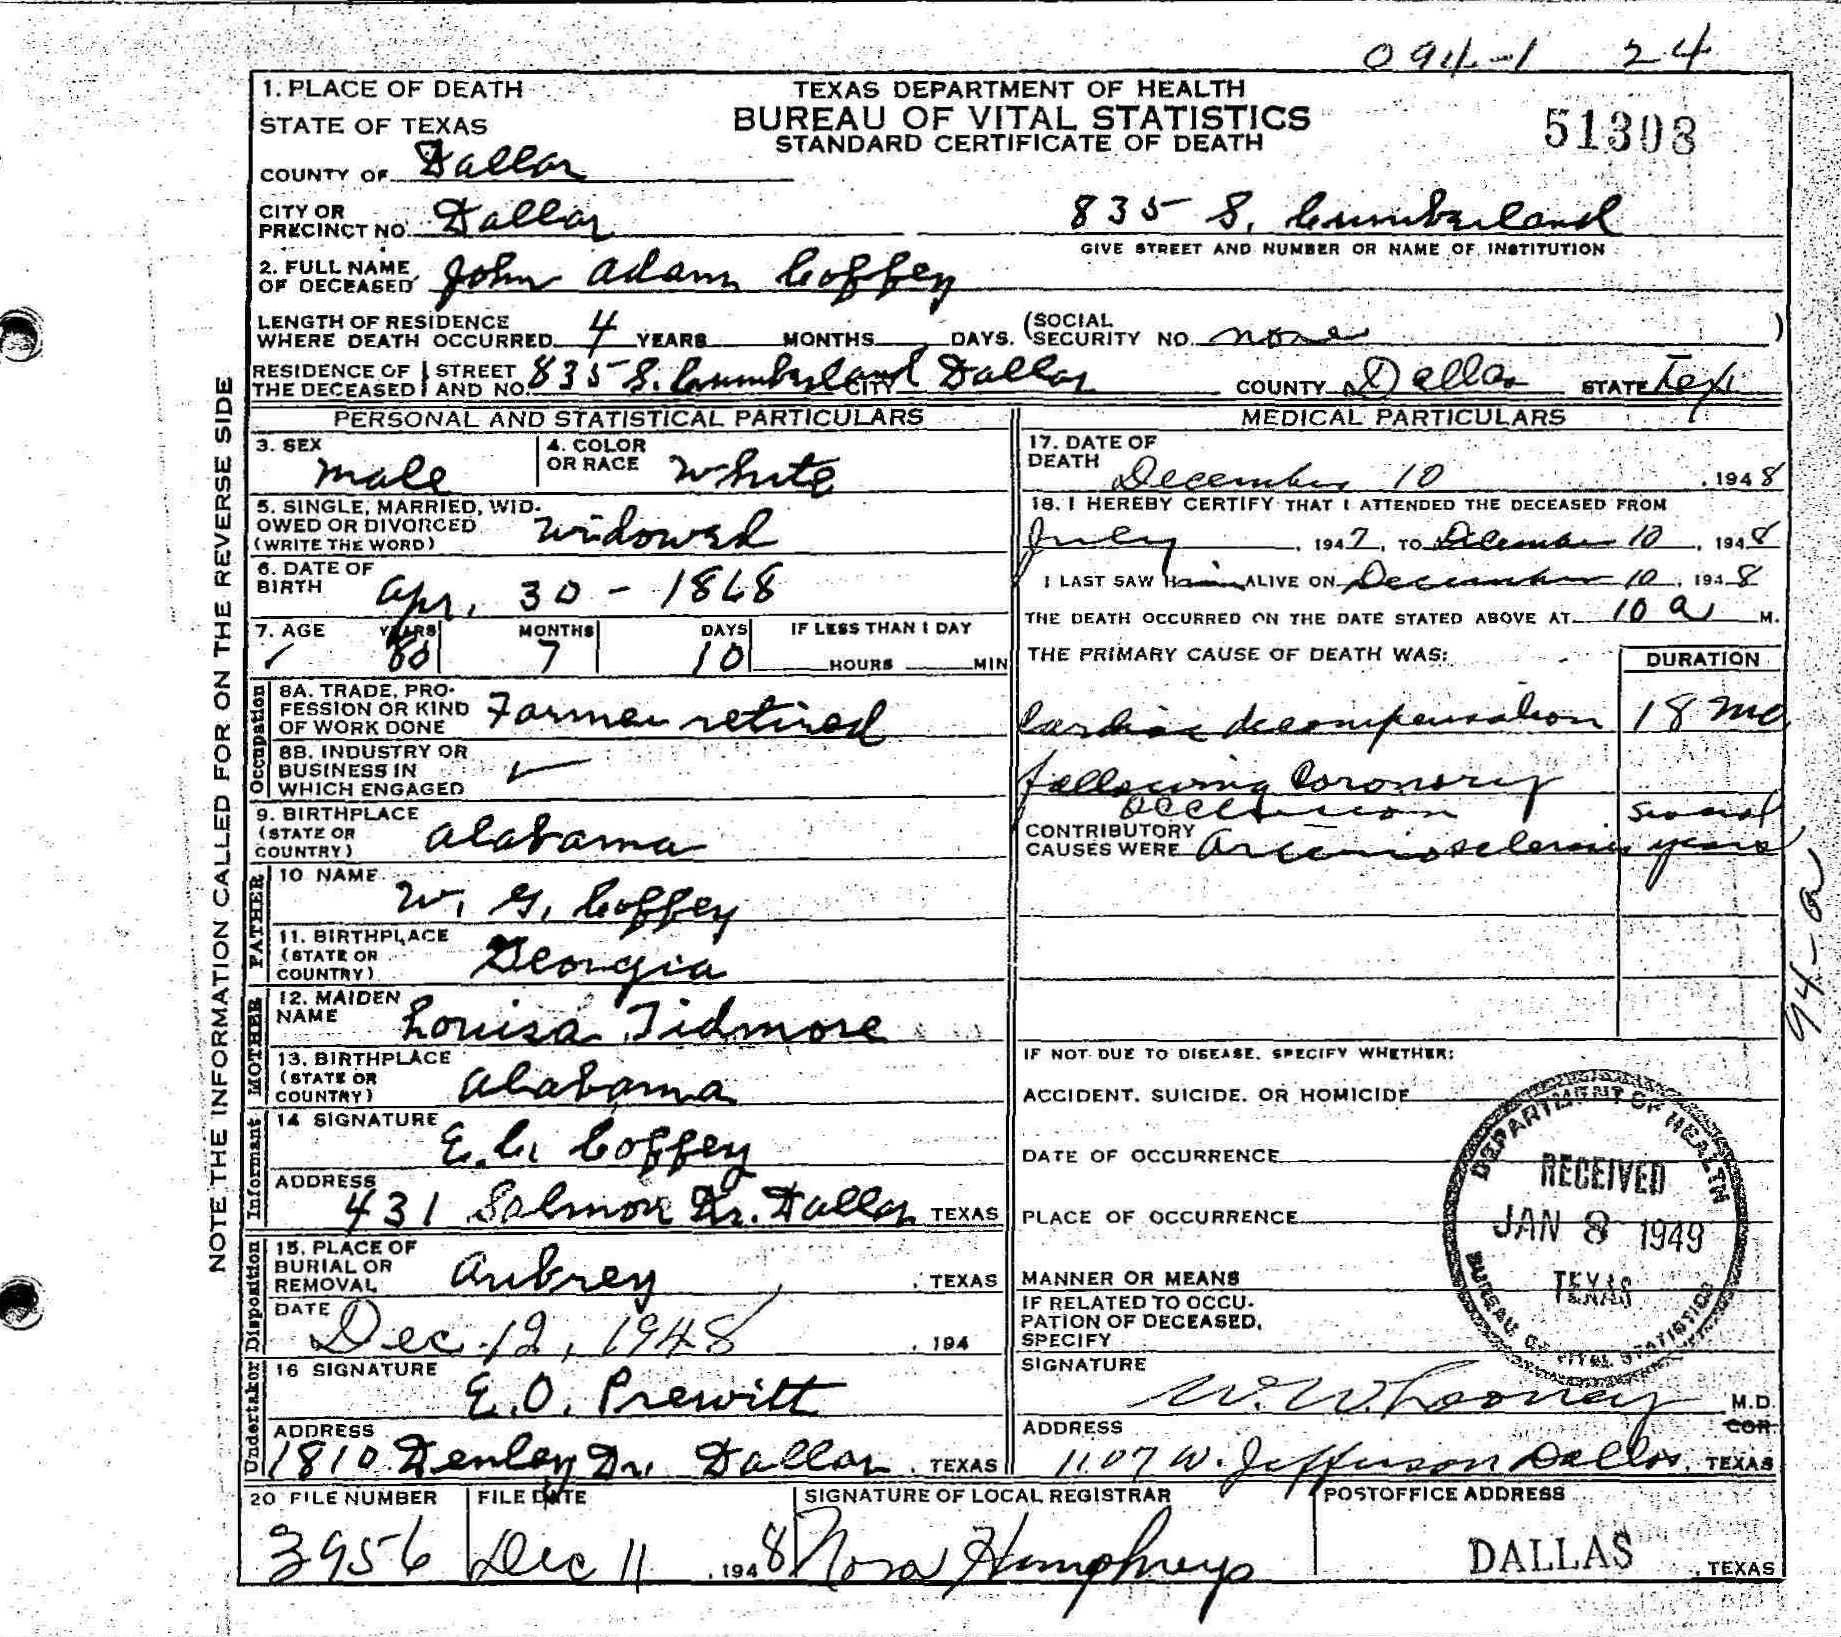 094-1 24
1. PLACE OF DEATH
STATE OF TEXAS
COUNTY OF Dallas
TEXAS DEPARTMENT OF HEALTH
BUREAU OF VITAL STATISTICS
STANDARD CERTIFICATE OF DEATH
51308
CITY OR
PRECINCT NO. Dallas
835 S. Cumberland
GIVE STREET AND NUMBER OR NAME OF INSTITUTION
2. FULL NAME
OF DECEASED John Adam Coffey
LENGTH OF RESIDENCE
WHERE DEATH OCCURRED 4 YEARS MONTHS DAYS. (SOCIAL SECURITY NO. none )
RESIDENCE OF THE DECEASED STREET AND NO. 835 S. Cumberland CITY Dallas COUNTY Dallas STATE Tex
PERSONAL AND STATISTICAL PARTICULARS
3. SEX
male
4. COLOR
OR RACE White
5. SINGLE, MARRIED, WID-
OWED OR DIVORCED
(WRITE THE WORD) Widowed
6. DATE OF
BIRTH Apr. 30 - 1868
7. AGE YEARS MONTHS DAYS IF LESS THAN 1 DAY
80 7 10 HOURS MIN
Occupation
8A. TRADE, PRO-
FESSION OR KIND
OF WORK DONE Farmer retired
8B. INDUSTRY OR
BUSINESS IN
WHICH ENGAGED
9. BIRTHPLACE
(STATE OR
COUNTRY) Alabama
FATHER
10 NAME
W. G. Coffey
11. BIRTHPLACE
(STATE OR
COUNTRY) Georgia
MOTHER
12. MAIDEN
NAME Louisa Tidmore
13. BIRTHPLACE
(STATE OR
COUNTRY) Alabama
Informant
14 SIGNATURE
E. C. Coffey
ADDRESS
431 Salmon Dr. Dallas TEXAS
Disposition
15. PLACE OF
BURIAL OR
REMOVAL Aubrey , TEXAS
DATE
Dec. 12, 1948 , 194
Undertaker
16 SIGNATURE
E. O. Prewitt
ADDRESS
1810 Denley Dr. Dallas , TEXAS
MEDICAL PARTICULARS
17. DATE OF
DEATH December 10 , 1948
18. I HEREBY CERTIFY THAT I ATTENDED THE DECEASED FROM
July , 1947, TO December 10 , 1948
I LAST SAW Him ALIVE ON December 10, 1948
THE DEATH OCCURRED ON THE DATE STATED ABOVE AT 10 a M.
THE PRIMARY CAUSE OF DEATH WAS: DURATION
Cardiac decompensation 18 mo
following Coronary
occlusion
CONTRIBUTORY
CAUSES WERE Arteriosclerosis several years
IF NOT DUE TO DISEASE, SPECIFY WHETHER:
ACCIDENT, SUICIDE, OR HOMICIDE
DATE OF OCCURRENCE
PLACE OF OCCURRENCE
MANNER OR MEANS
IF RELATED TO OCCU-
PATION OF DECEASED,
SPECIFY
SIGNATURE
W. W. Looney M.D.
COR.
ADDRESS
1107 W. Jefferson Dallas, TEXAS
DEPARTMENT OF HEALTH
RECEIVED
JAN 8 1949
TEXAS
BUREAU OF VITAL STATISTICS
20 FILE NUMBER
3956
FILE DATE
Dec 11 , 1948
SIGNATURE OF LOCAL REGISTRAR
Nora Humphreys
POSTOFFICE ADDRESS
DALLAS , TEXAS
NOTE THE INFORMATION CALLED FOR ON THE REVERSE SIDE
94-a